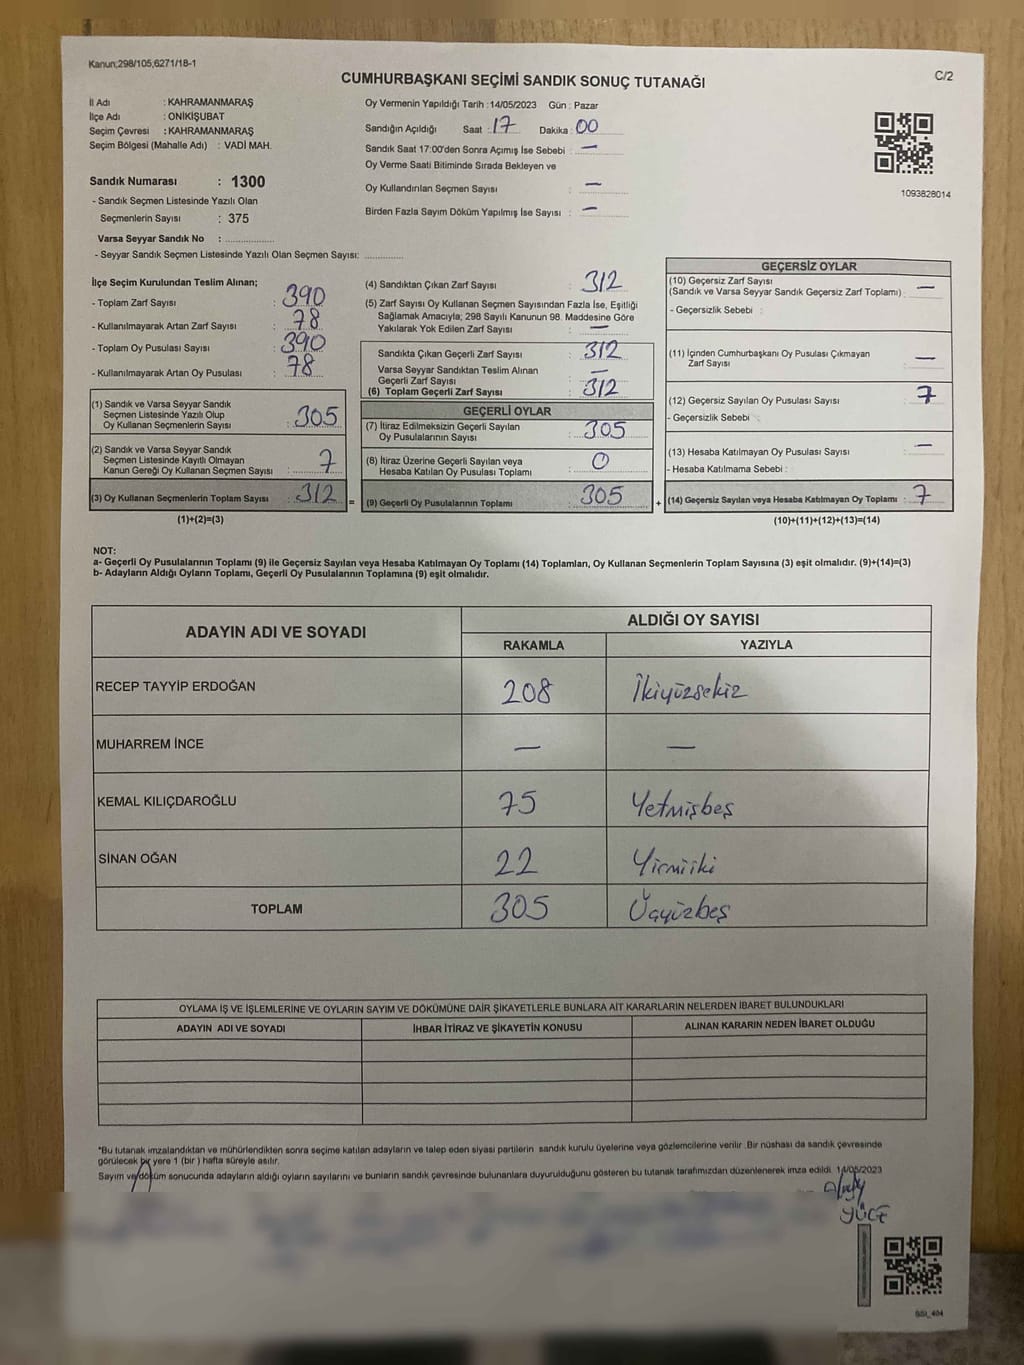 Kanun;298/105,6271/18-1
C/2
CUMHURBAŞKANI SEÇİMİ SANDIK SONUÇ TUTANAĞI
İl Adı : KAHRAMANMARAŞ
İlçe Adı : ONİKİŞUBAT
Seçim Çevresi : KAHRAMANMARAŞ
Seçim Bölgesi (Mahalle Adı) : VADİ MAH.
Sandık Numarası : 1300
- Sandık Seçmen Listesinde Yazılı Olan
Seçmenlerin Sayısı : 375
Varsa Seyyar Sandık No : ..............
- Seyyar Sandık Seçmen Listesinde Yazılı Olan Seçmen Sayısı: ............
Oy Vermenin Yapıldığı Tarih : 14/05/2023 Gün : Pazar
Sandığın Açıldığı Saat : 17 Dakika : 00
Sandık Saat 17:00'den Sonra Açımış İse Sebebi : —
Oy Verme Saati Bitiminde Sırada Bekleyen ve
Oy Kullandırılan Seçmen Sayısı : —
Birden Fazla Sayım Döküm Yapılmış İse Sayısı : —
1093828014
İlçe Seçim Kurulundan Teslim Alınan;
- Toplam Zarf Sayısı : 390
- Kullanılmayarak Artan Zarf Sayısı : 78
- Toplam Oy Pusulası Sayısı : 390
- Kullanılmayarak Artan Oy Pusulası : 78
(1) Sandık ve Varsa Seyyar Sandık
Seçmen Listesinde Yazılı Olup
Oy Kullanan Seçmenlerin Sayısı : 305
(2) Sandık ve Varsa Seyyar Sandık
Seçmen Listesinde Kayıtlı Olmayan
Kanun Gereği Oy Kullanan Seçmen Sayısı : 7
(3) Oy Kullanan Seçmenlerin Toplam Sayısı : 312 =
(1)+(2)=(3)
(4) Sandıktan Çıkan Zarf Sayısı : 312
(5) Zarf Sayısı Oy Kullanan Seçmen Sayısından Fazla İse, Eşitliği
Sağlamak Amacıyla; 298 Sayılı Kanunun 98. Maddesine Göre
Yakılarak Yok Edilen Zarf Sayısı : —
Sandıkta Çıkan Geçerli Zarf Sayısı : 312
Varsa Seyyar Sandıktan Teslim Alınan
Geçerli Zarf Sayısı : —
(6) Toplam Geçerli Zarf Sayısı : 312
GEÇERLİ OYLAR
(7) İtiraz Edilmeksizin Geçerli Sayılan
Oy Pusulalarının Sayısı : 305
(8) İtiraz Üzerine Geçerli Sayılan veya
Hesaba Katılan Oy Pusulası Toplamı : 0
(9) Geçerli Oy Pusulalarının Toplamı : 305 +
GEÇERSİZ OYLAR
(10) Geçersiz Zarf Sayısı
(Sandık ve Varsa Seyyar Sandık Geçersiz Zarf Toplamı) : —
- Geçersizlik Sebebi :
(11) İçinden Cumhurbaşkanı Oy Pusulası Çıkmayan
Zarf Sayısı : —
(12) Geçersiz Sayılan Oy Pusulası Sayısı : 7
- Geçersizlik Sebebi :
(13) Hesaba Katılmayan Oy Pusulası Sayısı : —
- Hesaba Katılmama Sebebi :
(14) Geçersiz Sayılan veya Hesaba Katılmayan Oy Toplamı : 7
(10)+(11)+(12)+(13)=(14)
NOT:
a- Geçerli Oy Pusulalarının Toplamı (9) ile Geçersiz Sayılan veya Hesaba Katılmayan Oy Toplamı (14) Toplamları, Oy Kullanan Seçmenlerin Toplam Sayısına (3) eşit olmalıdır. (9)+(14)=(3)
b- Adayların Aldığı Oyların Toplamı, Geçerli Oy Pusulalarının Toplamına (9) eşit olmalıdır.
ADAYIN ADI VE SOYADI
ALDIĞI OY SAYISI
RAKAMLA YAZIYLA
RECEP TAYYİP ERDOĞAN 208 İkiyüzsekiz
MUHARREM İNCE — —
KEMAL KILIÇDAROĞLU 75 Yetmişbeş
SİNAN OĞAN 22 Yirmiiki
TOPLAM 305 Üçyüzbeş
OYLAMA İŞ VE İŞLEMLERİNE VE OYLARIN SAYIM VE DÖKÜMÜNE DAİR ŞİKAYETLERLE BUNLARA AİT KARARLARIN NELERDEN İBARET BULUNDUKLARI
ADAYIN ADI VE SOYADI İHBAR İTİRAZ VE ŞİKAYETİN KONUSU ALINAN KARARIN NEDEN İBARET OLDUĞU
*Bu tutanak imzalandıktan ve mühürlendikten sonra seçime katılan adayların ve talep eden siyasi partilerin sandık kurulu üyelerine veya gözlemcilerine verilir .Bir nüshası da sandık çevresinde
görülecek bir yere 1 (bir ) hafta süreyle asılır.
Sayım ve döküm sonucunda adayların aldığı oyların sayılarını ve bunların sandık çevresinde bulunanlara duyurulduğunu gösteren bu tutanak tarafımızdan düzenlenerek imza edildi. 14/05/2023
YÜCE